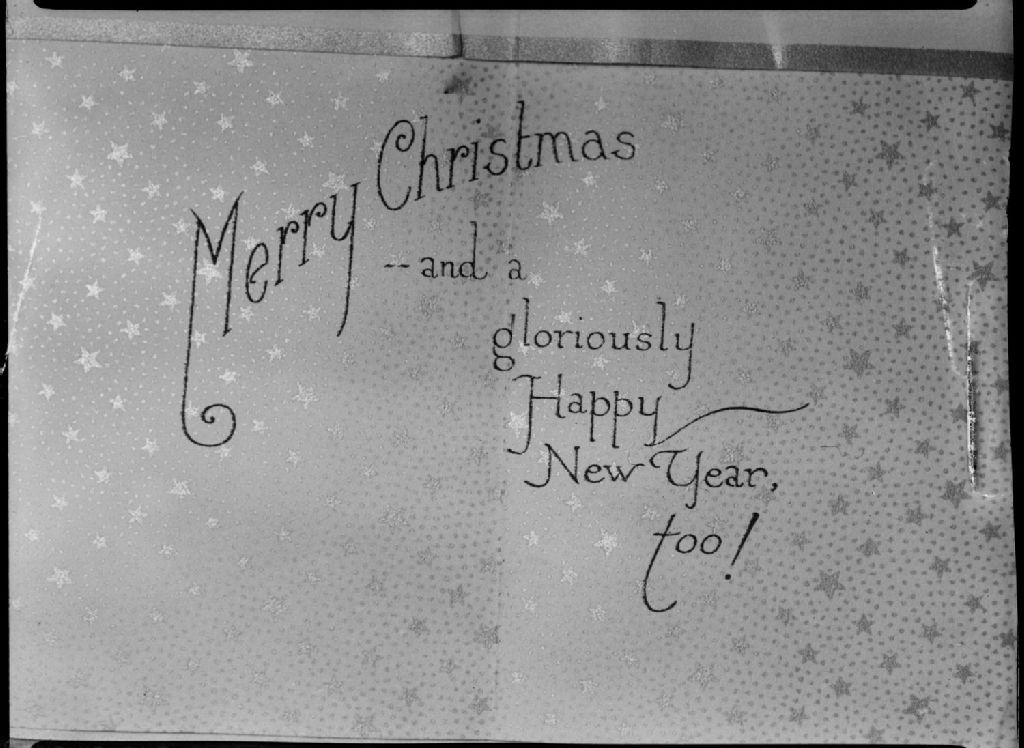 Merry Christmas
--and a
gloriously
Happy
New Year,
too!